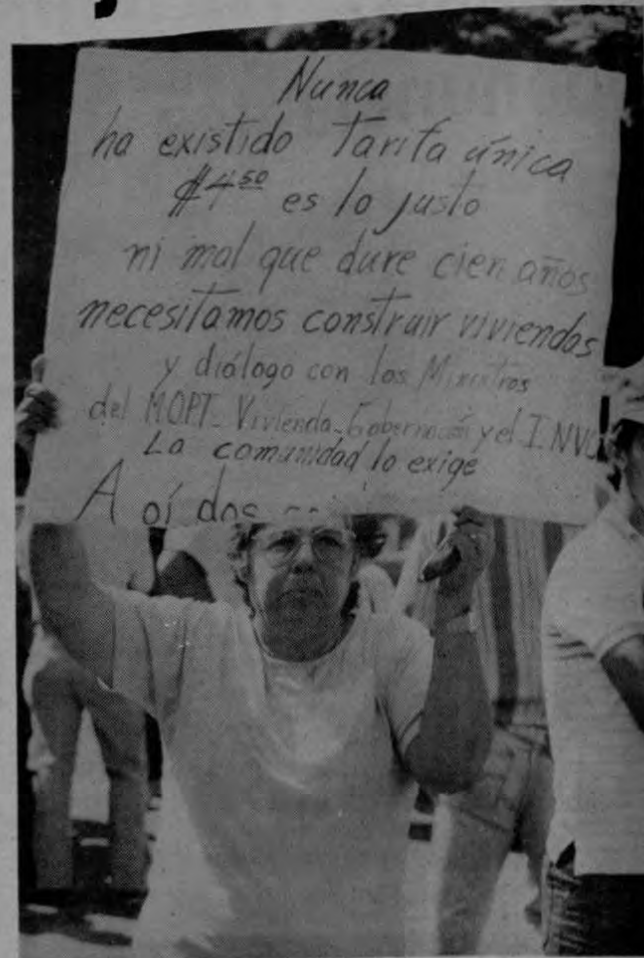 Nunca
ha existido Tarifa única
₡4⁵⁰ es lo justo
ni mal que dure cien años
necesitamos construir viviendas
y diálogo con los Ministros
del MOPT_ Vivienda_ Gobernación y el I.NVU
La comunidad lo exige
A oí dos